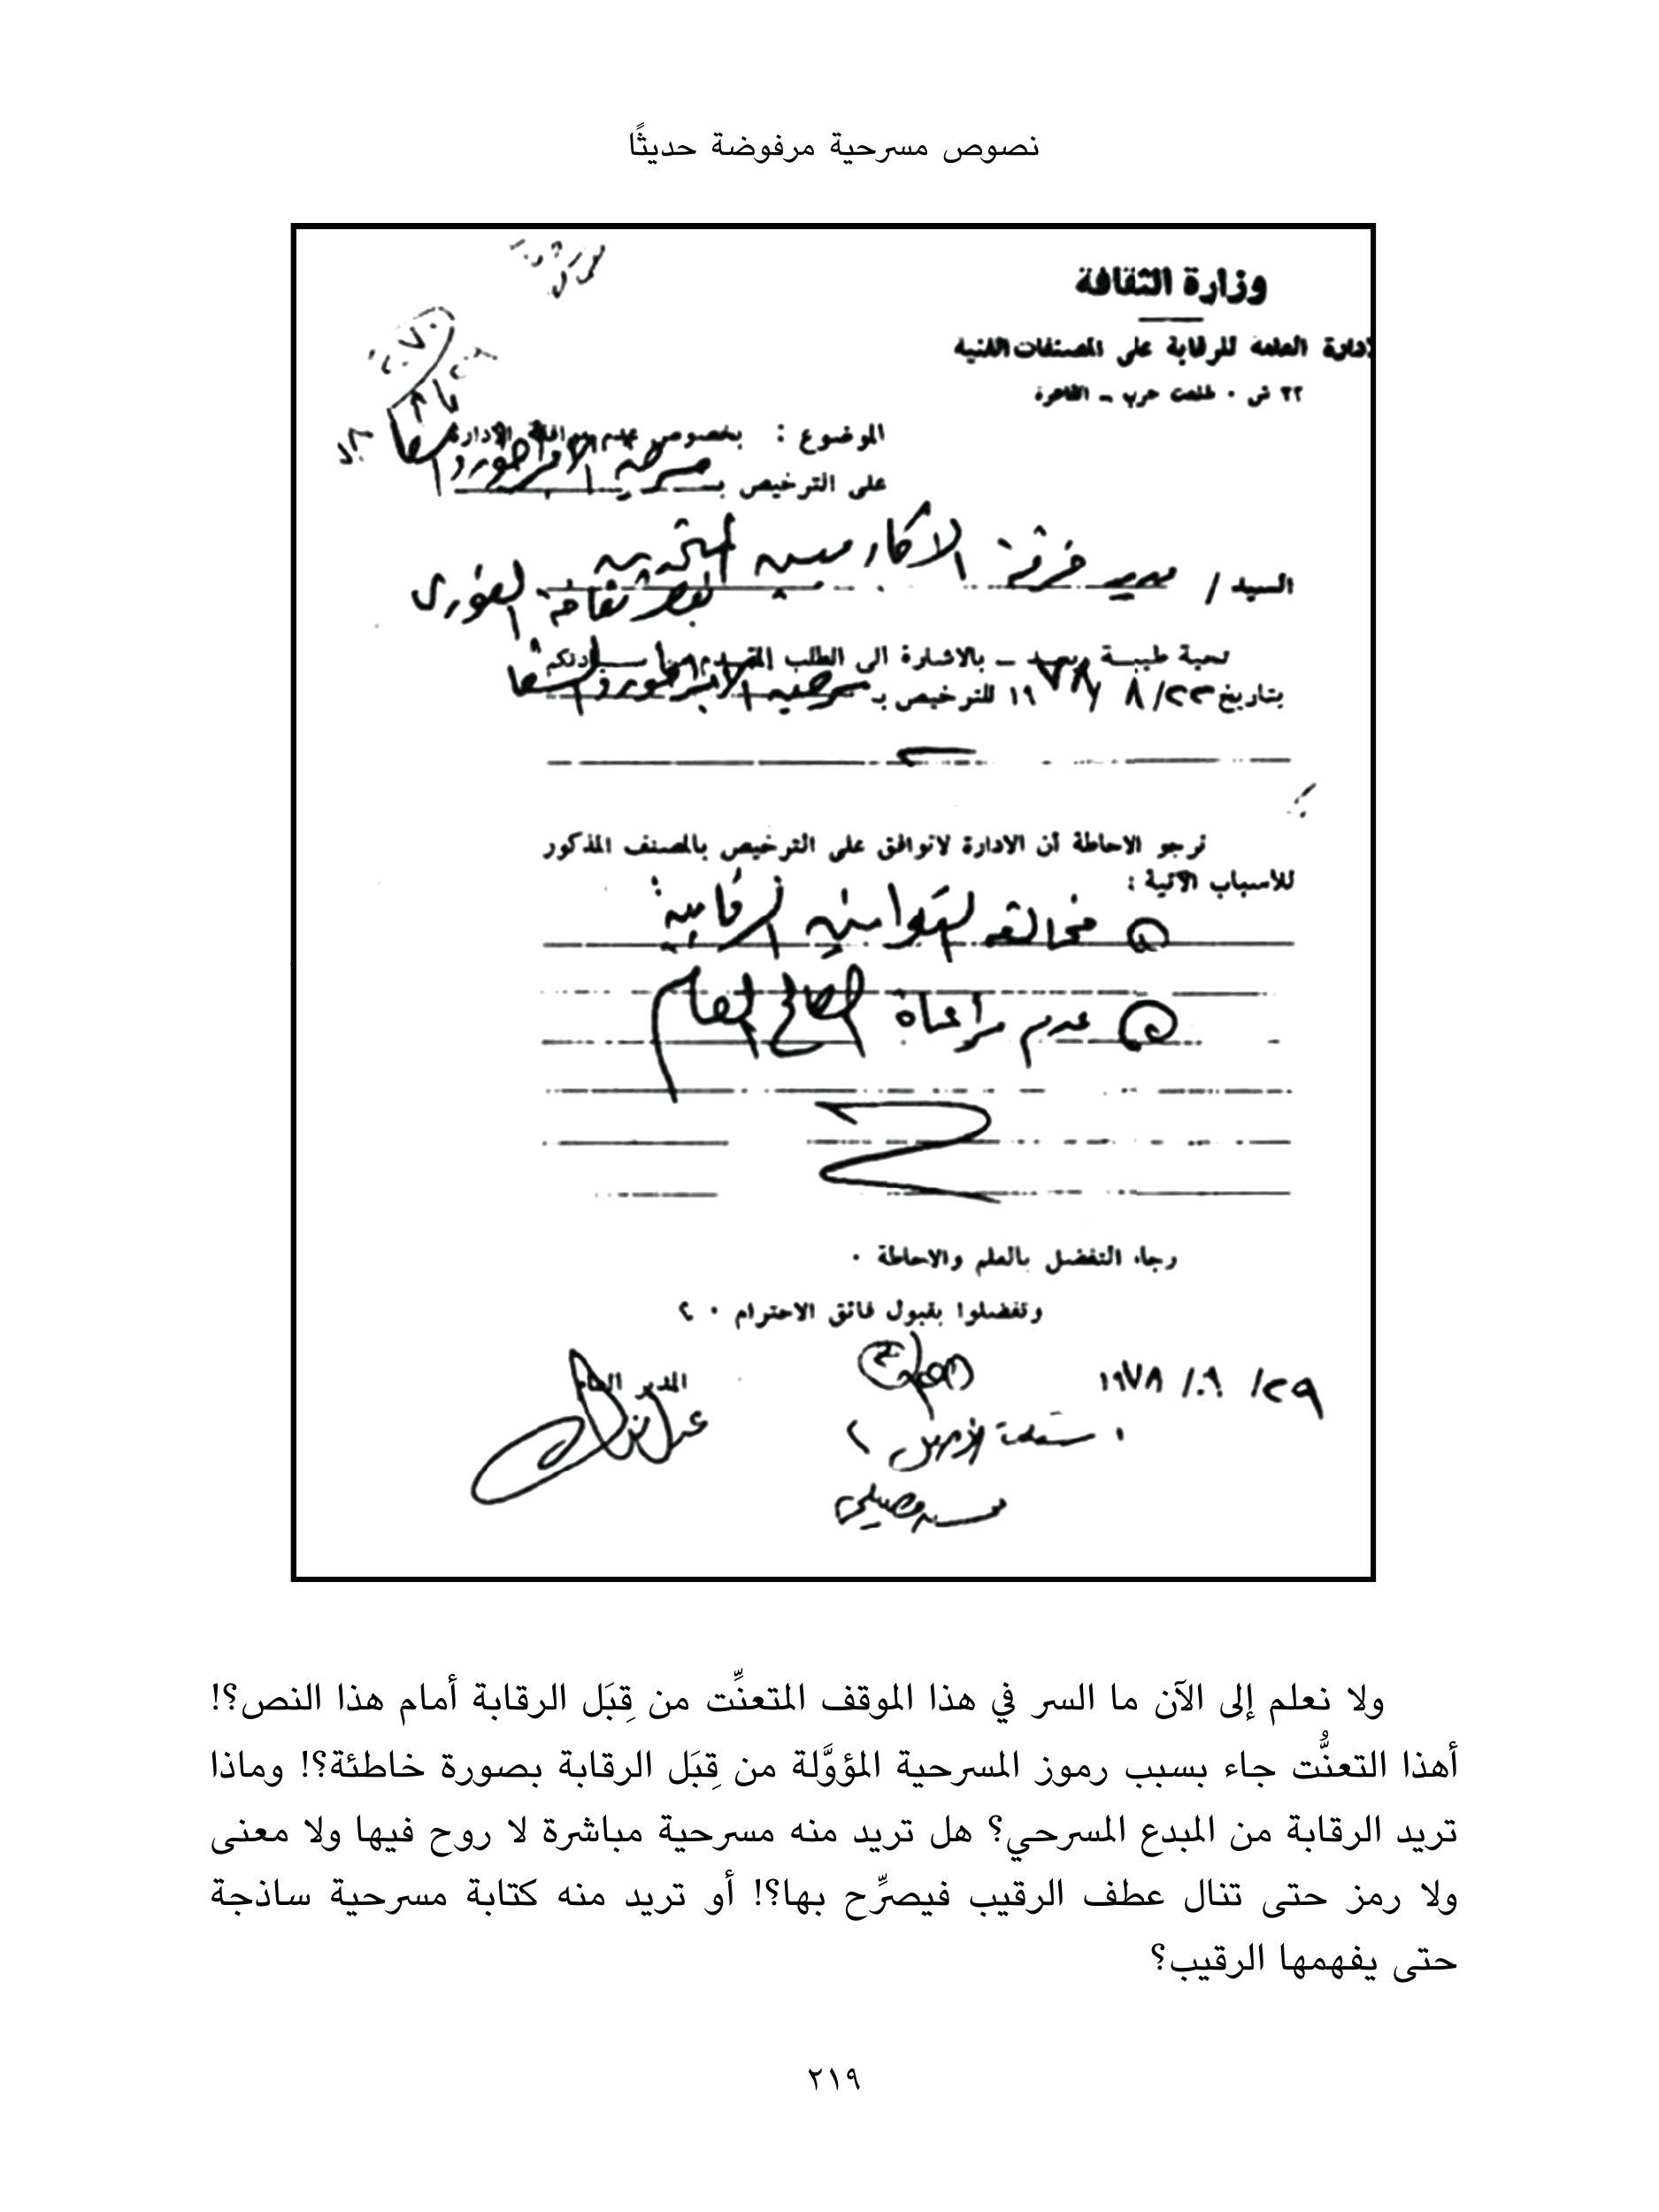 نصوص مسرحية مرفوضة حديثًا
وزارة الثقافة
الادارة العامة للرقابة على المصنفات الفنية
٢٢ ش ٠ طلعت حرب ــ القاهرة
الموضوع : بخصوص عدم موافقة الادارة
على الترخيص بـ مسرحية الامبراطور
السيد / مدير فرقة
تحية طيبـــة وبعــد ــ بالاشارة الى الطلب المقـدم من سـيادتكم
بتاريخ ٢٣/ ٨ /١٩٧٨ للترخيص بـ مسرحية الامبراطور
نرجو الاحاطة أن الادارة لاتوافق على الترخيص بالمصنف المذكور
للأسباب الآتية :
١ مخالفة القوانين الرقابية
٢ عدم مراعاة الصالح العام
رجاء التفضل بالعلم والاحاطة ٠
وتفضلوا بقبول فائق الاحترام ٠
٢٩/ ٩ /١٩٧٨
المدير العام
استلمت الأصل
ولا نعلم إلى الآن ما السر في هذا الموقف المتعنِّت من قِبَل الرقابة أمام هذا النص؟!
أهذا التعنُّت جاء بسبب رموز المسرحية المؤوَّلة من قِبَل الرقابة بصورة خاطئة؟! وماذا
تريد الرقابة من المبدع المسرحي؟ هل تريد منه مسرحية مباشرة لا روح فيها ولا معنى
ولا رمز حتى تنال عطف الرقيب فيصرِّح بها؟! أو تريد منه كتابة مسرحية ساذجة
حتى يفهمها الرقيب؟
٢١٩